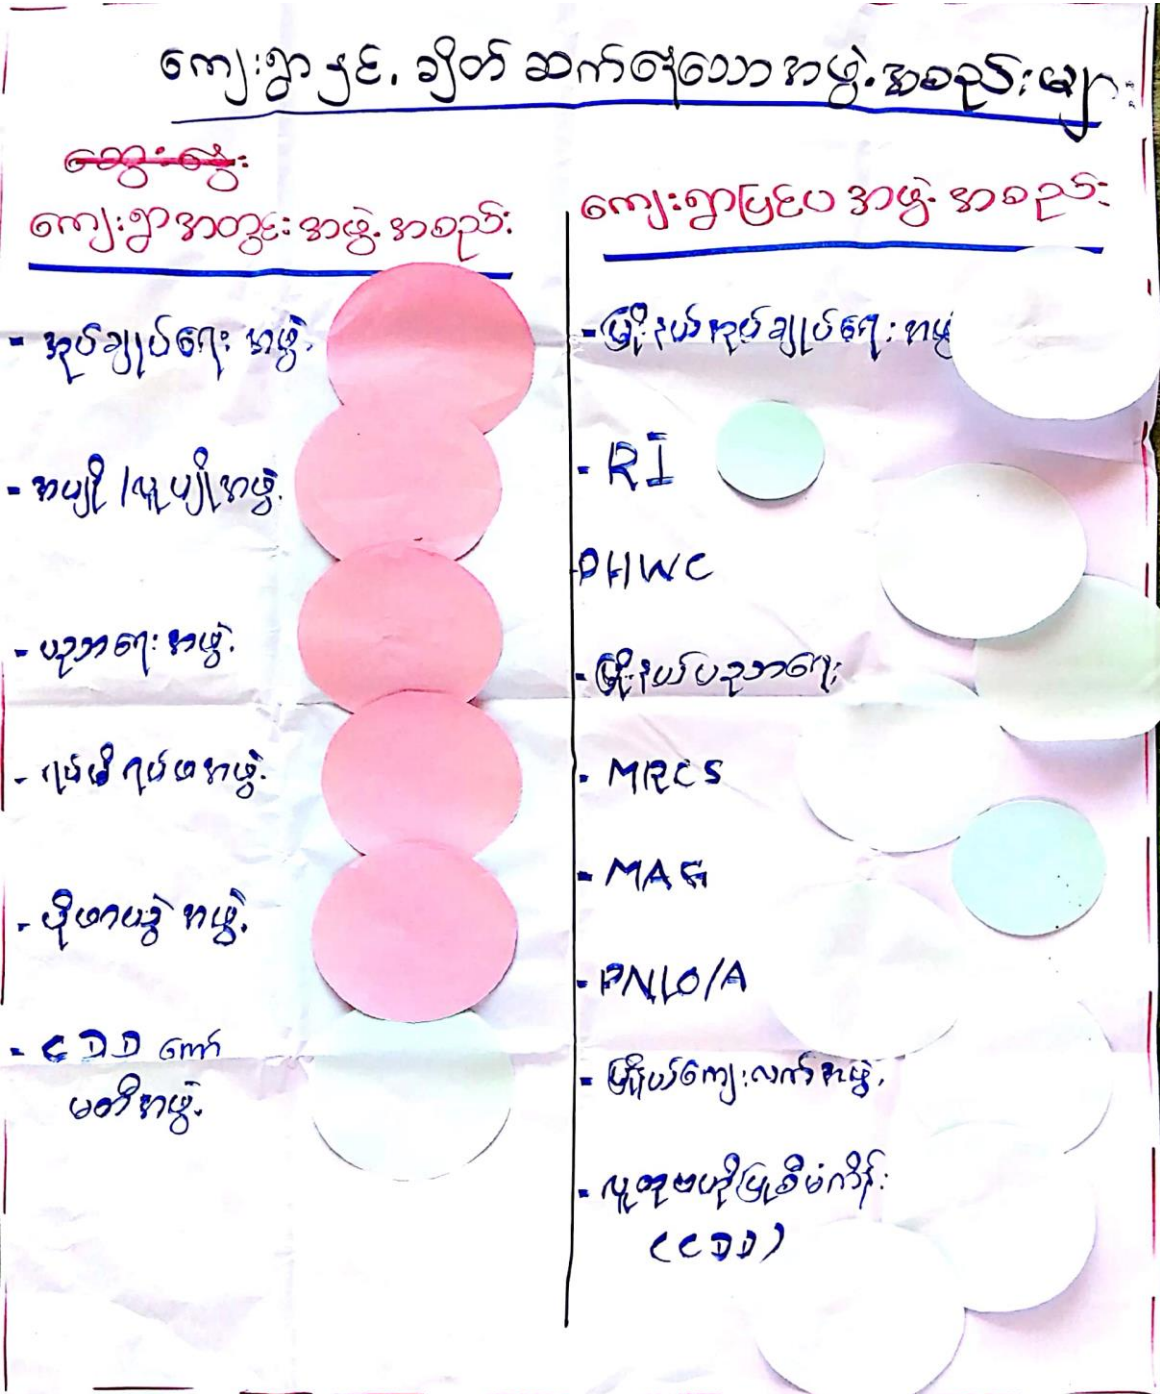 ကျေးရွာနှင့် ချိတ်ဆက်နေသော အဖွဲ့အစည်းများ
ဆွေးနွေး
ကျေးရွာအတွင်းအဖွဲ့အစည်း
- အုပ်ချုပ်ရေး အဖွဲ့
- အပျို/လူပျိုအဖွဲ့
- ပညာရေး အဖွဲ့
- ရပ်မိရပ်ဖအဖွဲ့
- ဖိုတာယွဲ အဖွဲ့
- CDD ကော်
မတီအဖွဲ့
ကျေးရွာပြင်ပ အဖွဲ့အစည်း
- မြို့နယ်အုပ်ချုပ်ရေးအဖွဲ့
- RI
- PHWC
- မြို့နယ်ပညာရေး
- MRCS
- MAG
- PNLO/A
- မြို့နယ်ကျေးလက်အဖွဲ့
- လူထုဗဟိုပြုစီမံကိန်း
(CDD)